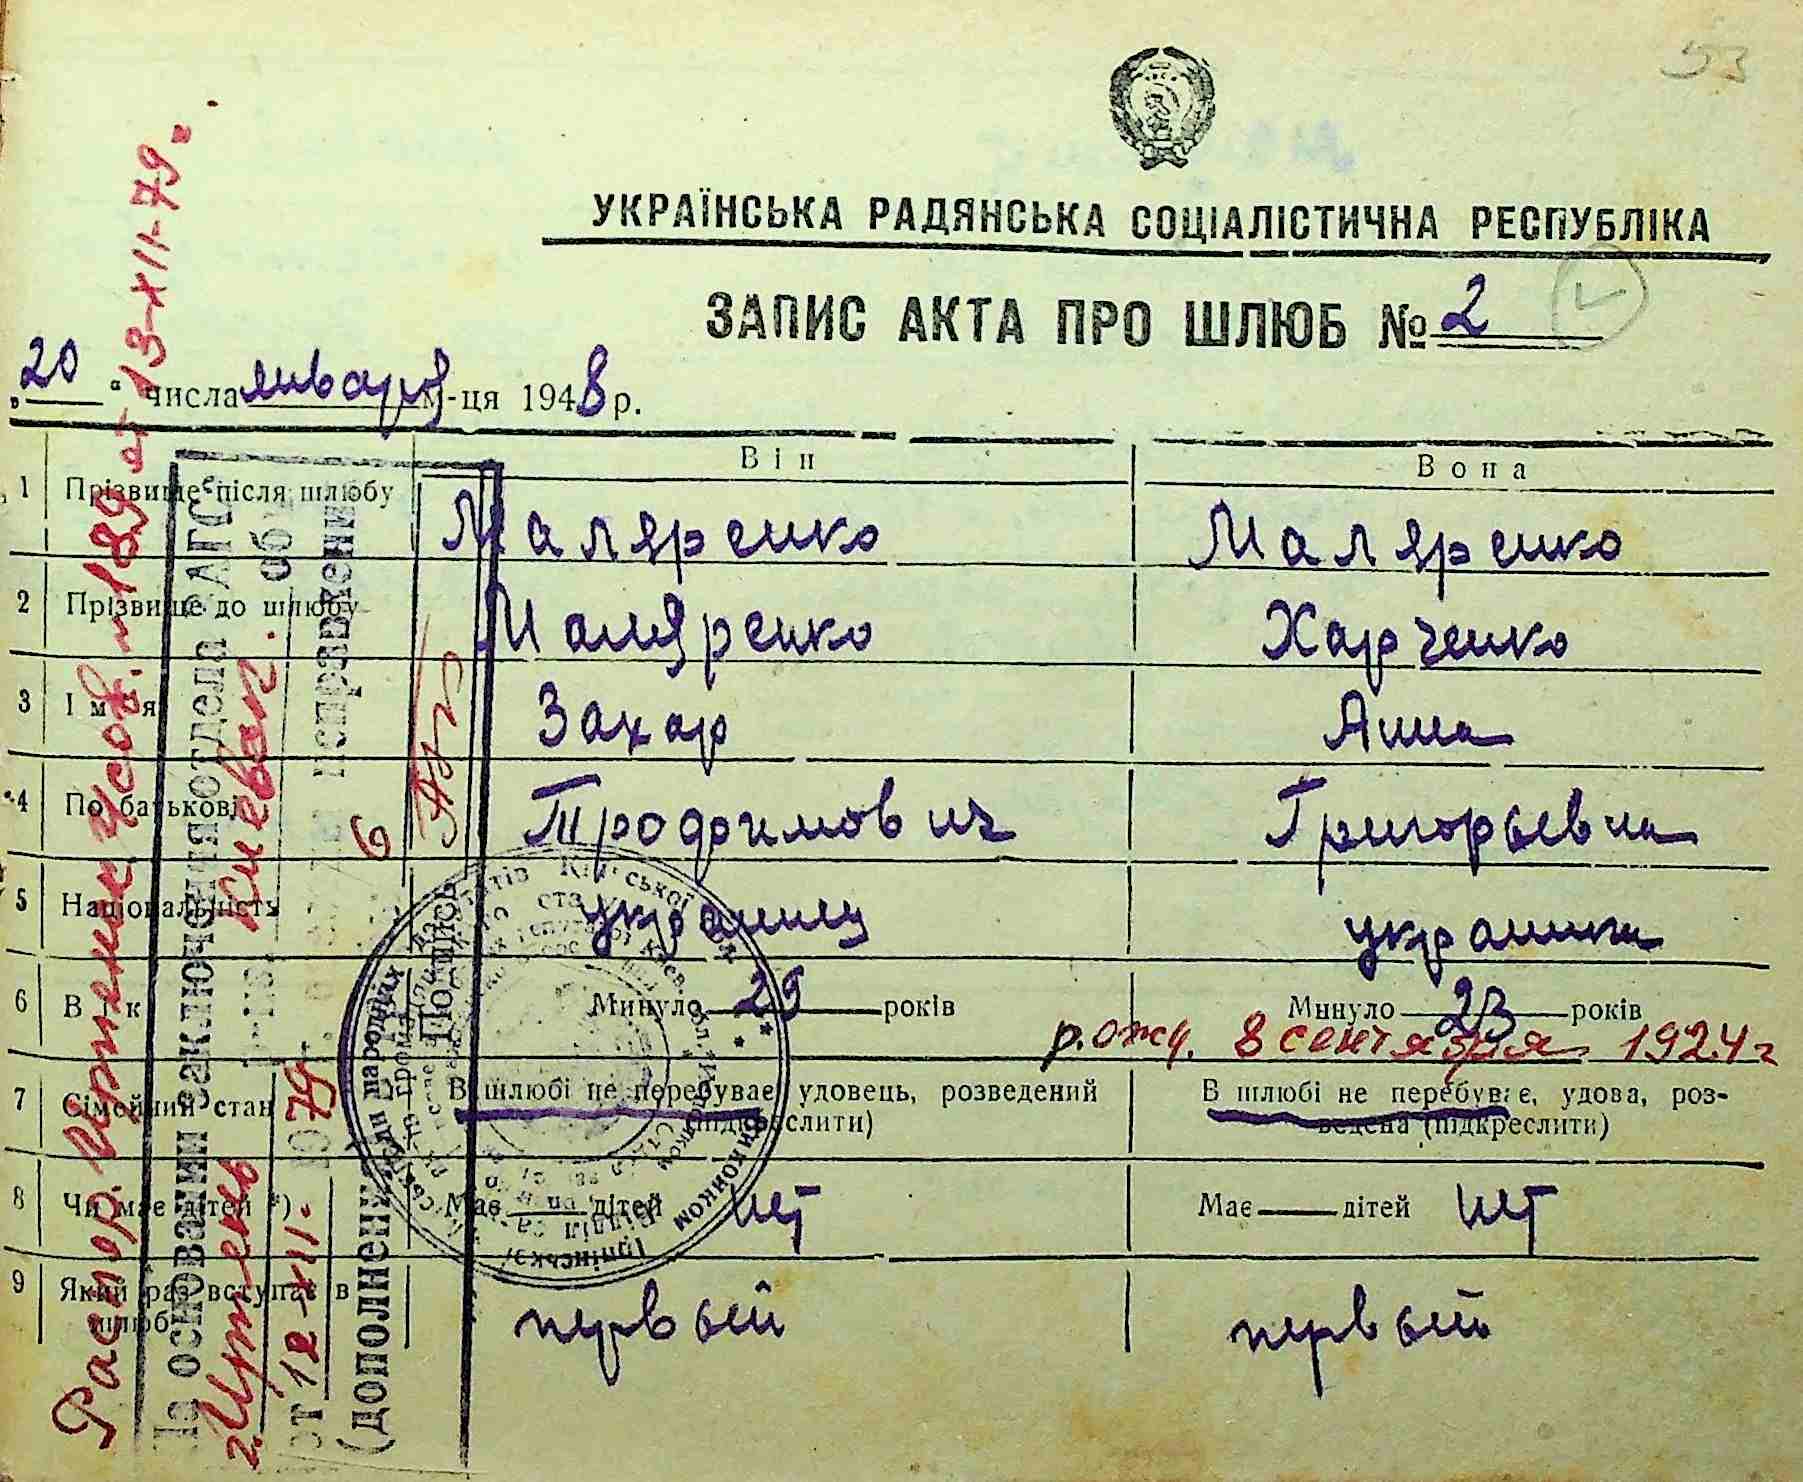 53
УКРАЇНСЬКА РАДЯНСЬКА СОЦІАЛІСТИЧНА РЕСПУБЛІКА
ЗАПИС АКТА ПРО ШЛЮБ № 2
„20“ числа января м-ця 1948 р.
Він Вона
1 Прізвище після шлюбу Маляренко Маляренко
2 Прізвище до шлюбу Маляренко Харченко
3 Ім'я Захар Анна
4 По батькові Трофимович Григорьевна
5 Національність украинец украинка
6 Вік Минуло 29 років Минуло 23 років
рожд. 8 сентября 1924 г
7 Сімейний стан В шлюбі не перебуває, удовець, розведений (підкреслити) В шлюбі не перебуває, удова, роз-
ведена (підкреслити)
8 Чи має дітей *) Має дітей нет Має дітей нет
9 Який раз вступає в шлюб первый первый
Распор. Ирпенск. 189 от 13-XII-79 г.
На основании заключения отдела ЗАГС
г. Ирпень Киевск. об
от 12-XII. 1979 г. исправлени
(дополнени
Подпись